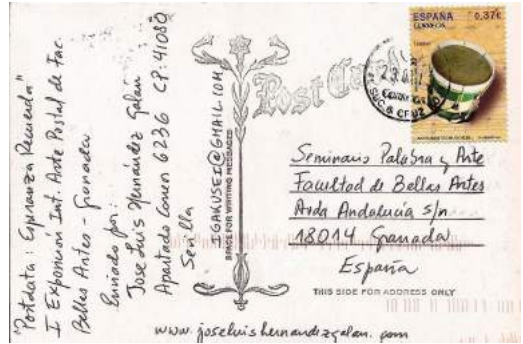 "Postdata: Esperanza Recuerda"
I Exposición Int. Arte Postal de Fac.
Bellas Artes - Granada
Enviado por:
Jose Luis Hernández Galan
Apartado Correo 6236 CP: 41080
Sevilla
IGAKUSEI@GMAIL.COM
SPACE FOR WRITING MESSAGES
Post Card
ESPAÑA 0,37€
CORREOS
Seminario Palabra y Arte
Facultad de Bellas Artes
Avda Andalucía s/n
18014 Granada
España
THIS SIDE FOR ADDRESS ONLY
www.joseluishernandezgalan.com